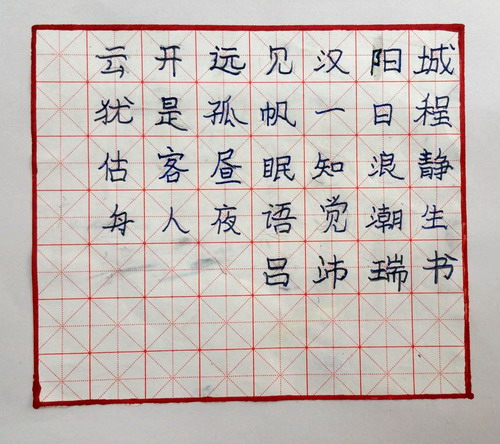 云开远见汉阳城
犹是孤帆一日程
估客昼眠知浪静
舟人夜语觉潮生
吕沛瑞书